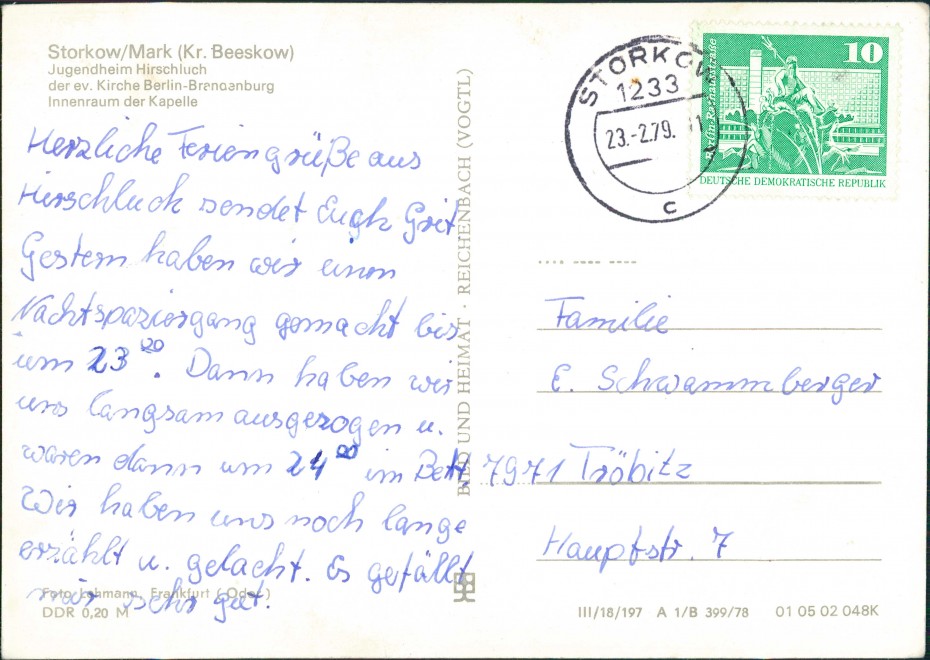 Storkow/Mark (Kr. Beeskow)
Jugendheim Hirschluch
der ev. Kirche Berlin-Brandenburg
Innenraum der Kapelle
Herzliche Feriengrüße aus
Hirschluch sendet Euch Grit
Gestern haben wir einen
Nachtspaziergang gemacht bis
um 23⁰⁰. Dann haben wir
uns langsam ausgezogen u.
waren dann um 24⁰⁰ im Bett.
Wir haben uns noch lange
erzählt u. gelacht. Es gefällt
mir sehr gut.
Foto Lehmann, Frankfurt (Oder)
DDR 0,20 M
BILD UND HEIMAT · REICHENBACH (VOGTL)
STORKOW
1233
23.-2.79.
c
10
DEUTSCHE DEMOKRATISCHE REPUBLIK
Familie
E. Schwammberger
7971 Tröbitz
Hauptstr. 7
III/18/197 A 1/B 399/78 01 05 02 048K